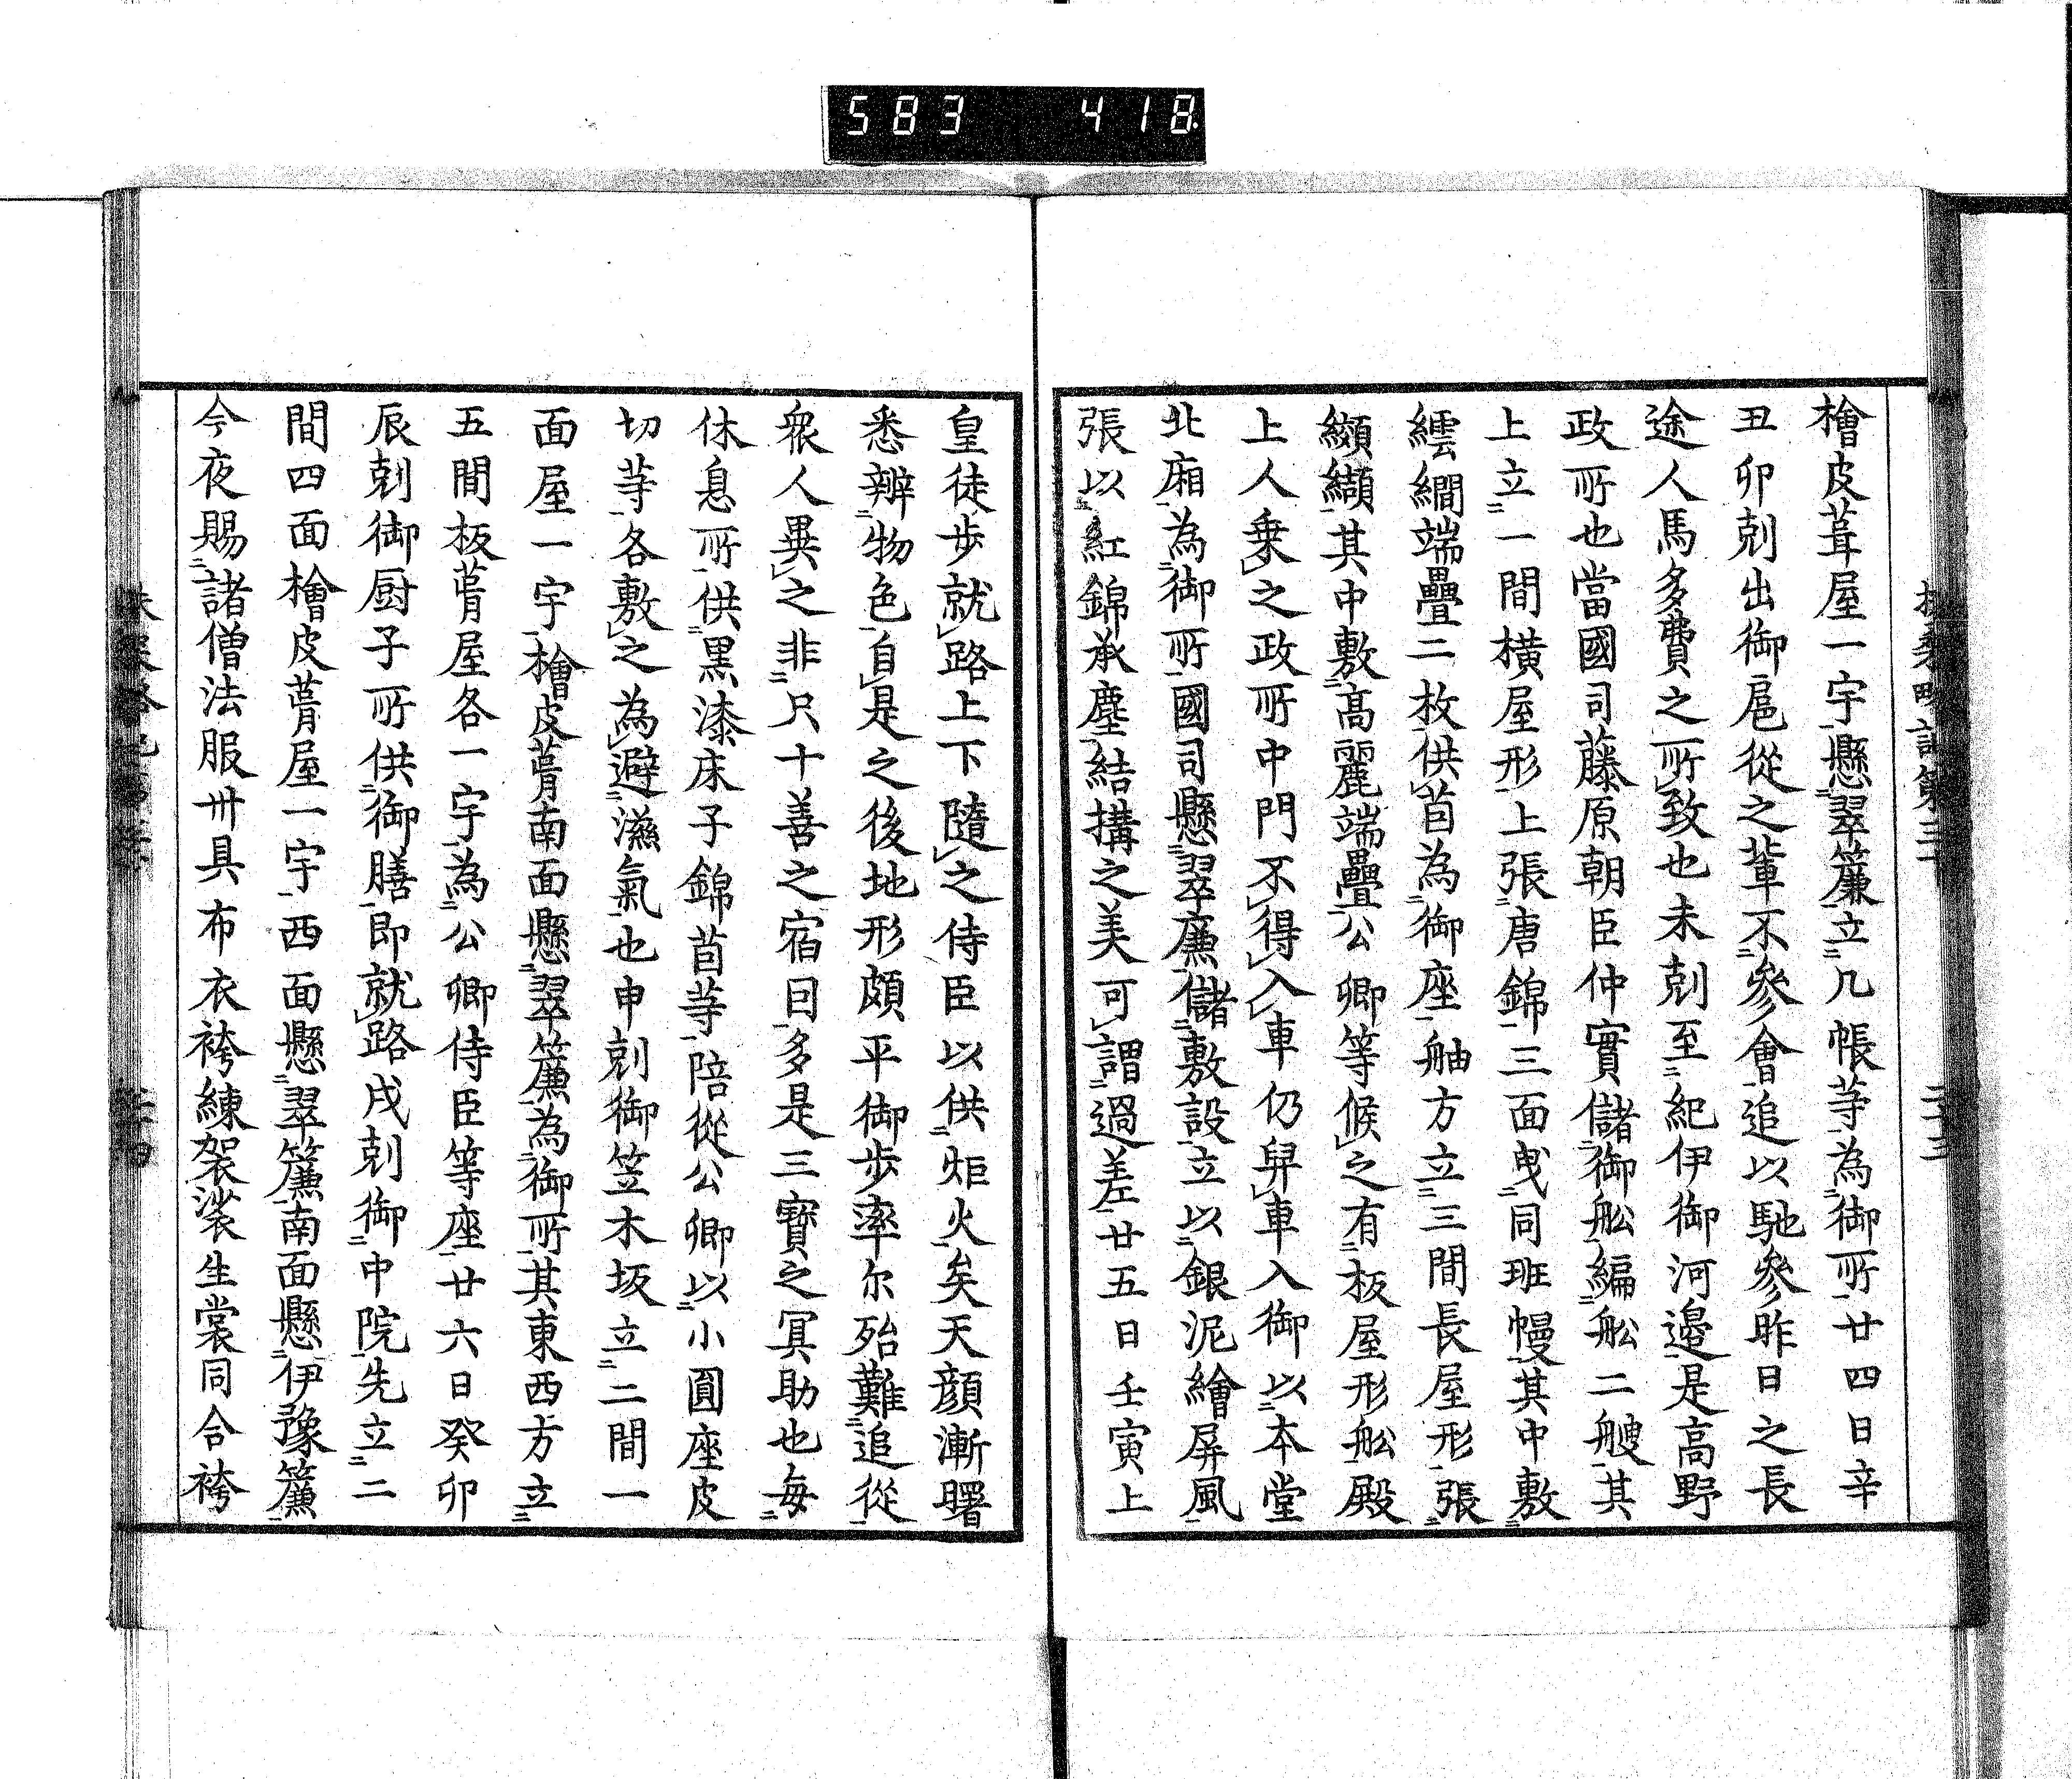 583 418
檜皮葺屋一宇懸翠簾立几帳等為御所廿四日辛
丑卯剋出御扈從之輩不參會追以馳參昨日之長
途人馬多費之所致也未剋至紀伊御河邊是高野
政所也當國司藤原朝臣仲實儲御舩編舩二艘其
上立一間橫屋形上張唐錦三面曳同班幔其中敷
繧繝端疊二枚供茵為御座舳方立三間長屋形張
纐纈其中敷高麗端疊公卿等候之有板屋形舩殿
上人乗之政所中門不得入車仍舁車入御以本堂
北廂為御所國司懸翠簾儲敷設立以銀泥繪屏風
張以紅錦承塵結搆之美可謂過差廿五日壬寅上
皇徒歩就路上下隨之侍臣以供炬火矣天顔漸曙
悉辨物色自是之後地形頗平御歩率尓殆難追從
衆人異之非只十善之宿因多是三寳之冥助也毎
休息所供黒漆床子錦茵等陪從公卿以小圓座皮
切等各敷之為避濕氣也申剋御笠木坂立二間一
面屋一宇檜皮葺南面懸翠簾為御所其東西方立
五間板葺屋各一宇為公卿侍臣等座廿六日癸卯
辰剋御厨子所供御膳即就路戌剋御中院先立二
間四面檜皮葺屋一宇西面懸翠簾南面懸伊豫簾
今夜賜諸僧法服卅具布衣袴練袈裟生裳同合袴